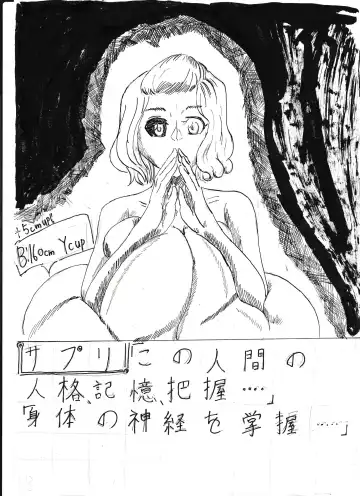 +5cmup!
B:160cm Ycup
サプリ「この人間の
人格、記憶、把握……」
「身体の神経を掌握……」